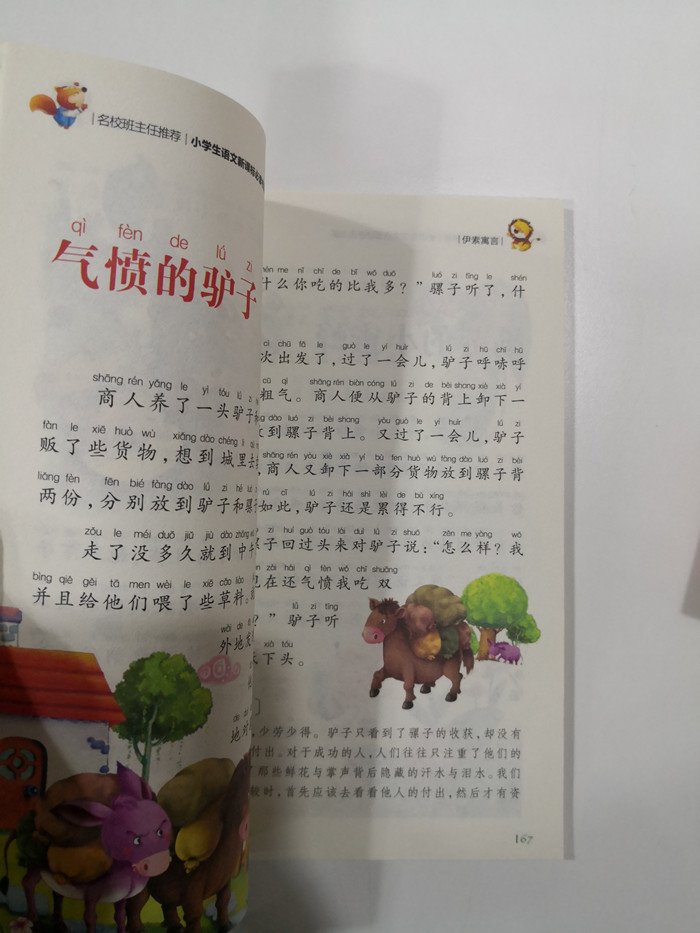 名校班主任推荐 小学生语文新课标必
qì fèn de lǘ zi
气愤的驴子
shāng rén yǎng le yì tóu lǘ
商人养了一头驴子
fàn le xiē huò wù xiǎng dào chéng lǐ
贩了些货物，想到城里去
liǎng fèn fēn bié fàng dào lǘ zi hé luó
两份，分别放到驴子和骡
zǒu le méi duō jiǔ jiù dào zhōng
走了没多久就到中
bìng qiě gěi tā men wèi le xiē cǎo liào
并且给他们喂了些草料。
wài de
外地
地对
伊索寓言
shén me nǐ chī de bǐ wǒ duō luó zi tīng le shén
什么你吃的比我多？”骡子听了，什
cì chū fā le guò le yí huìr lǘ zi hū chī hū
次出发了，过了一会儿，驴子呼哧呼
cū qì shāng rén biàn cóng lǘ zi de bèi shang xiè xià yí
粗气。商人便从驴子的背上卸下一
dào luó zi bèi shang yòu guò le yí huìr lǘ zi
放到骡子背上。又过了一会儿，驴子
shāng rén yòu xiè xià yí bù fen huò wù fàng dào luó zi bèi
，商人又卸下一部分货物放到骡子背
rú cǐ lǘ zi hái shì lèi de bù xíng
如此，驴子还是累得不行。
zi huí guò tóu lái duì lǘ zi shuō zěn me yàng wǒ
子回过头来对驴子说：“怎么样？我
zài hái qì fèn wǒ chī shuāng
在还气愤我吃 双
lǘ zi tīng
？”驴子听
xià tóu
下头。
，少劳少得。驴子只看到了骡子的收获，却没有
付出。对于成功的人，人们往往只注重了他们的
那些鲜花与掌声背后隐藏的汗水与泪水。我们
时，首先应该去看看他人的付出，然后才有资
167